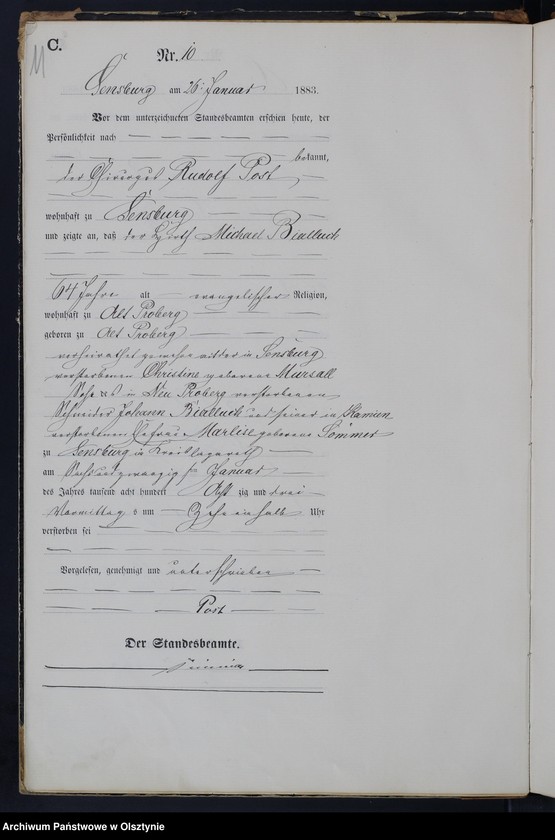 11
C.
Nr. 10
Sensburg am 26. Januar 1883.
Vor dem unterzeichneten Standesbeamten erschien heute, der
Persönlichkeit nach
bekannt,
der Rudolf Post
wohnhaft zu Sensburg
und zeigte an, daß der Wirth Michael Bialluch
64 Jahre alt evangelischer Religion,
wohnhaft zu Alt Proberg
geboren zu Alt Proberg
verheirathet gewesen mit der in Sensburg
verstorbenen Christine geborene Mursall
Sohn des in Neu Proberg verstorbenen
Schneider Johann Bialluch und seiner in Kamien
verstorbenen Ehefrau Marlise geborene Sommer
zu Sensburg in Kreislazareth
am Sechsundzwanzigsten Januar
des Jahres tausend acht hundert Acht zig und drei
Vormittag s um Zehn einhalb Uhr
verstorben sei
Vorgelesen, genehmigt und unterschrieben
Post
Der Standesbeamte.
Archiwum Państwowe w Olsztynie